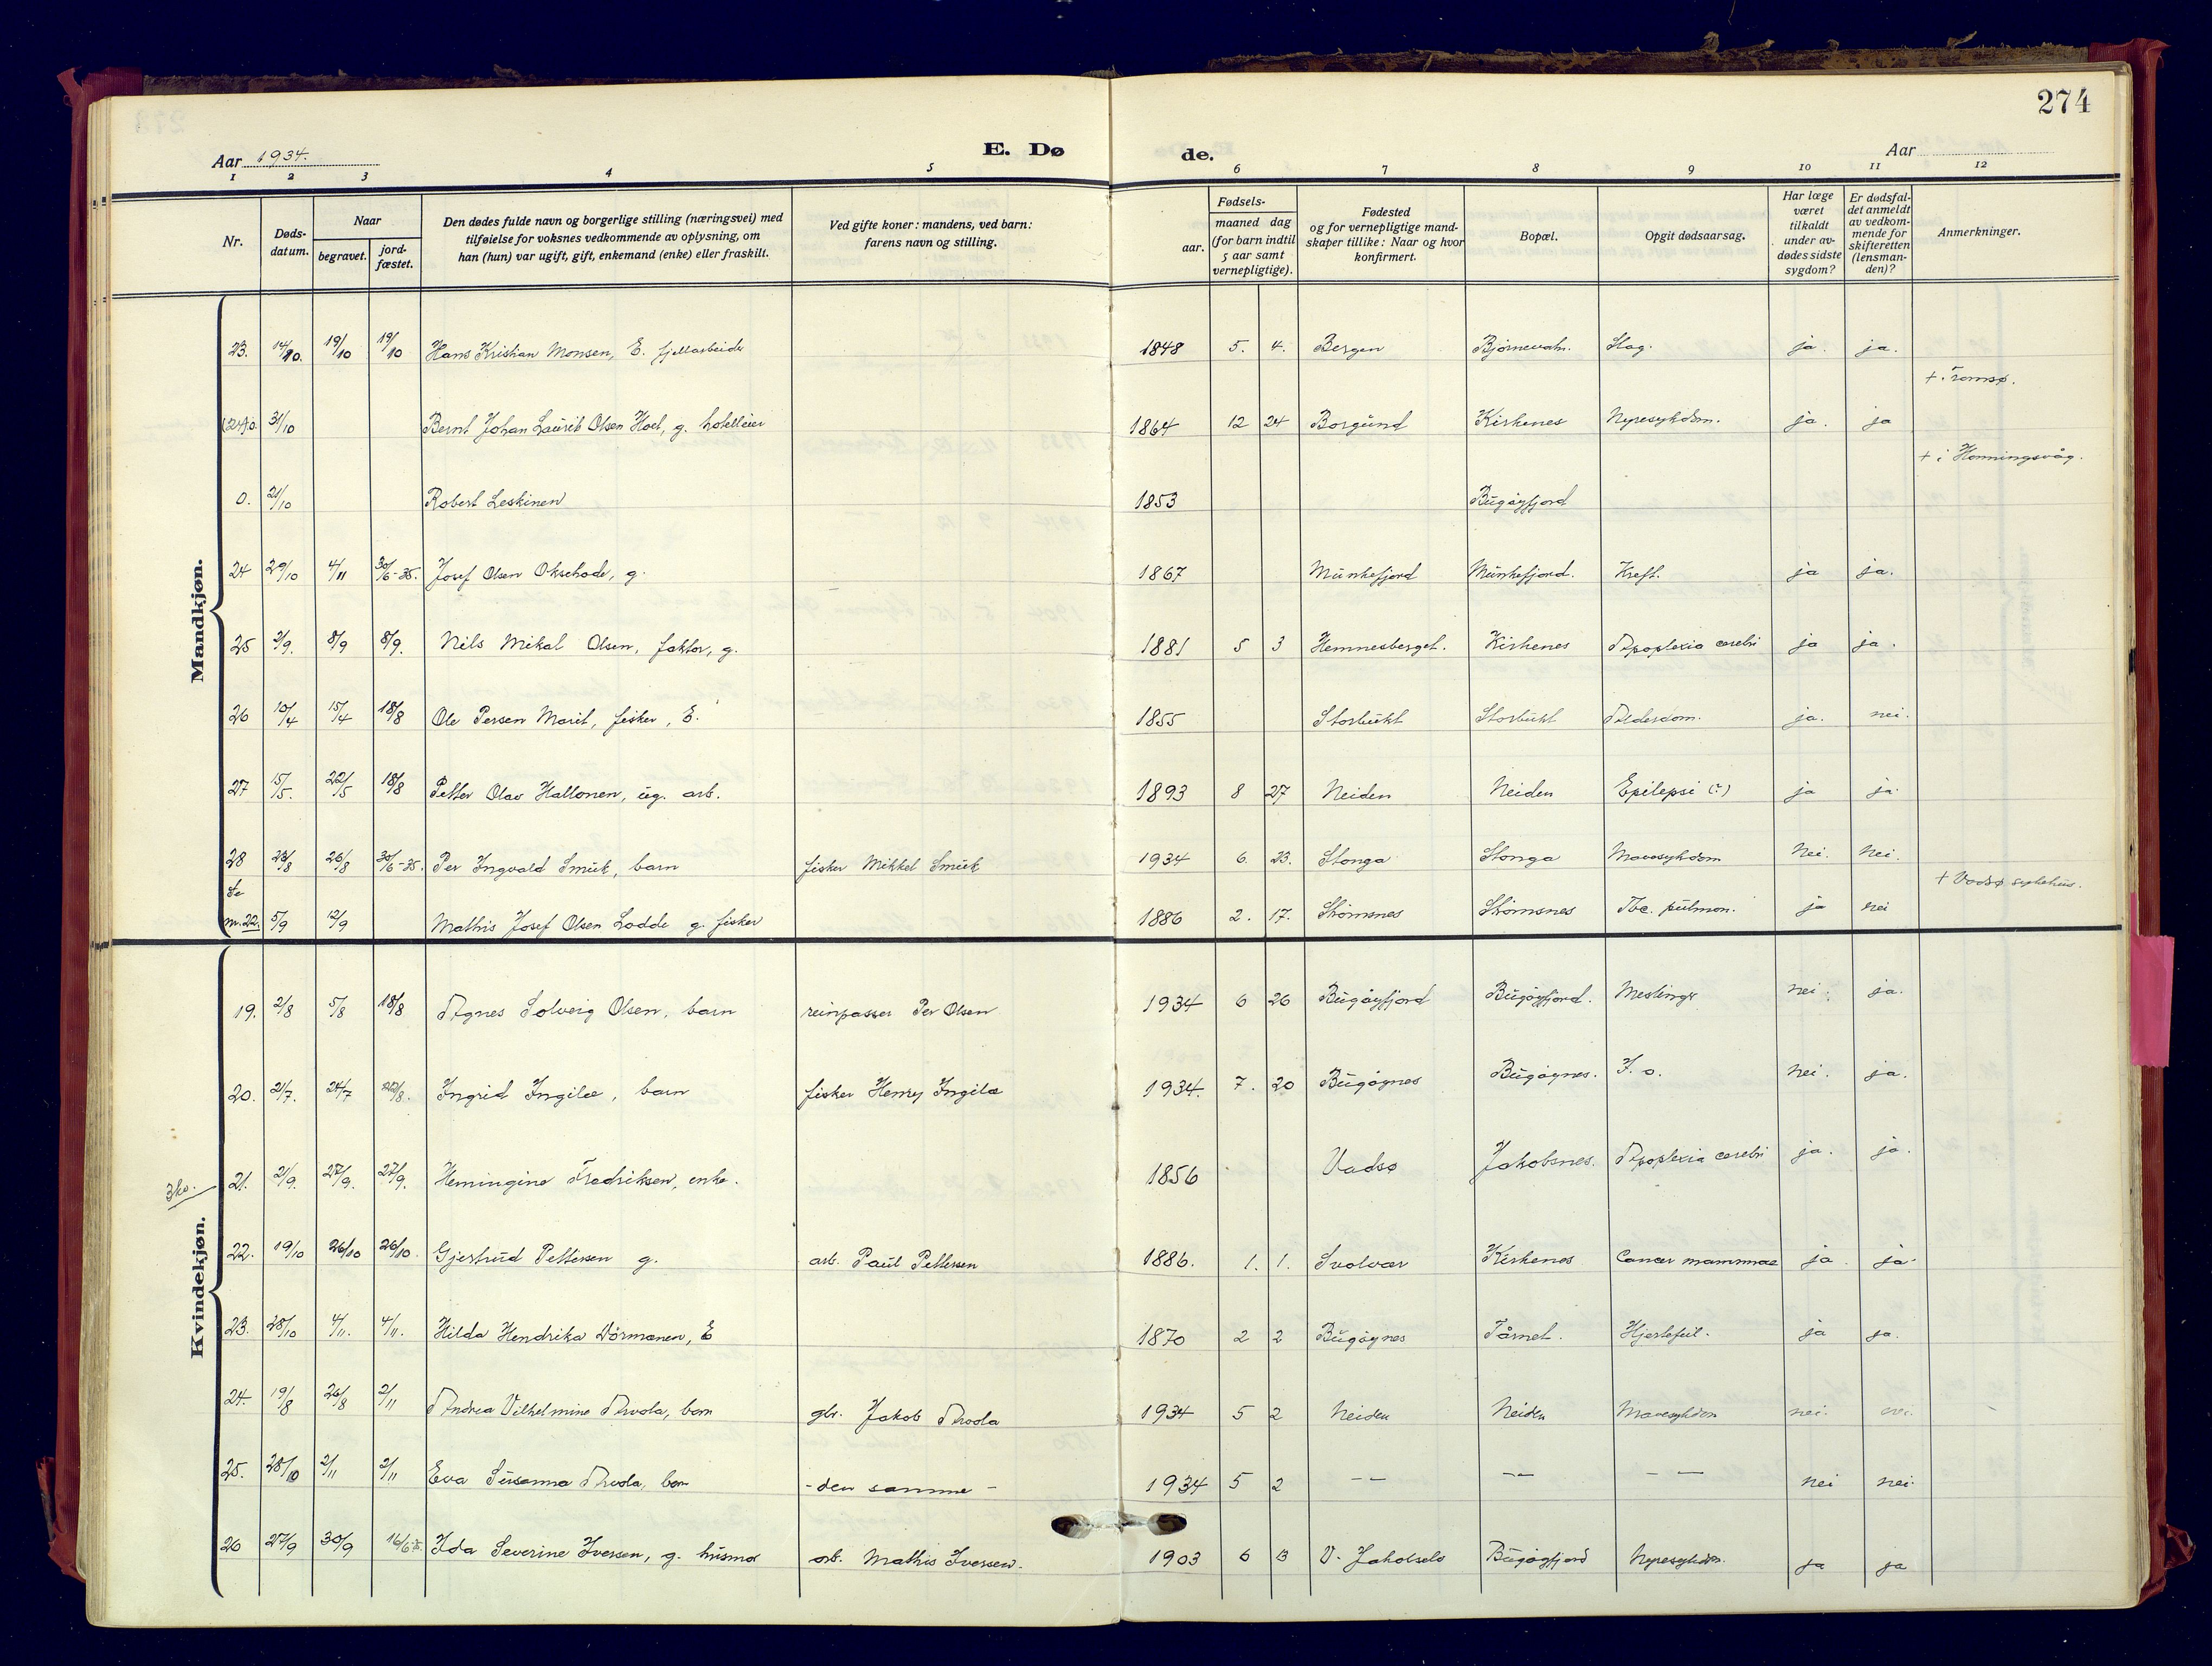 274
Aar 1934.
E. Dø
de.
Aar
1 2 3 4 5 6 7 8 9 10 11 12
Nr.
Døds-
datum.
Naar
begravet.
jord-
fæstet.
Den dødes fulde navn og borgerlige stilling (næringsvei) med
tilføielse for voksnes vedkommende av oplysning, om
han (hun) var ugift, gift, enkemand (enke) eller fraskilt.
Ved gifte koner: mandens, ved barn:
farens navn og stilling.
Fødsels-
aar.
maaned dag
(for barn indtil
5 aar samt
vernepligtige).
Fødested
og for vernepligtige mand-
skaper tillike: Naar og hvor
konfirmert.
Bopæl.
Opgit dødsaarsag.
Har læge
været
tilkaldt
under av-
dødes sidste
sygdom?
Er dødsfal-
det anmeldt
av vedkom-
mende for
skifteretten
(lensman-
den)?
Anmerkninger.
Mandkjøn.
23. 14/10. 19/10 19/10 Hans Kristian Monsen, E. fjellarbeider 1848 5. 4. Bergen Bjørnevatn. Slag. ja. ja.
+ i Tromsø.
(24)0. 31/10 Bernt Johan Laurits Olsen Hoel, g. hotelleier 1864 12 24 Borgund Kirkenes Nyresykdom. ja. ja
+ i Honningsvåg.
0. 21/10 Robert Leskinen 1853 Bugøyfjord
24 29/10 4/11 30/6-35. Josef Olsen Oksehode, g. 1867 Munkefjord Munkefjord. Kreft. ja ja.
25 3/9. 8/9 8/9. Nils Mikal Olsen, faktor, g. 1881 5 3 Hemnesberget. Kirkenes Apoplexia cerebri ja ja.
26 10/4 15/4 18/8 Ole Persen Marit, fisker, E. 1855 Storbukt Storbukt Alderdom. ja. nei.
27 15/5. 22/5 18/8 Petter Olav Hallonen, ug. arb. 1893 8 27 Neiden Neiden Epilepsi (?) ja ja
28 23/8 26/8 30/6-35. Per Ingvald Smuk, barn fisker Mikkel Smuk 1934 6. 23. Stonga Stonga Mavesykdom Nei. Nei.
+ Vadsø sykehus.
Se
nr. 22. 5/9 12/9 Mathis Josef Olsen Lodde g. fisker 1886 2. 17. Strømsnes Strømsnes Tbc. pulmon. ja nei
Kvindekjøn.
19. 2/8 5/8 18/8 Agnes Solveig Olsen, barn reinpasser Per Olsen 1934 6 26 Bugøyfjord Bugøyfjord. Meslinger nei. ja.
20. 21/7. 24/7 Ingrid Ingilæ, barn fisker Henry Ingilæ 1934. 7. 20 Bugøynes Bugøynes. nei. ja.
21. 21/9. 27/9. 27/9. Hemingine Fredriksen, enke. 1856 Vadsø Jakobsnes. Apoplexia cerebri ja. ja.
22. 19/10 26/10 26/10 Gjertrud Pettersen g. arb. Paul Pettersen 1886. 1. 1. Svolvær Kirkenes Cancer mammae ja. ja.
23. 28/10 4/11. 4/11. Hilda Hendrika Dørmænen, E 1870 2 2 Bugøynes Tårnet. Hjertefeil. ja ja.
24. 19/8 26/8 2/11 Andrea Vilhelmine Arvola, barn gbr. Jakob Arvola 1934 5 2 Neiden Neiden Mavesykdom nei. nei.
25. 28/10 2/11 2/11 Eva Susanna Arvola, barn - den samme - 1934 5 2 - - - - - - nei nei.
26 27/9 30/9 Ida Severine Iversen, g. husmor arb. Mathis Iversen. 1903 6 13 V. Jakobselv Bugøyfjord Nyresykdom. ja ja